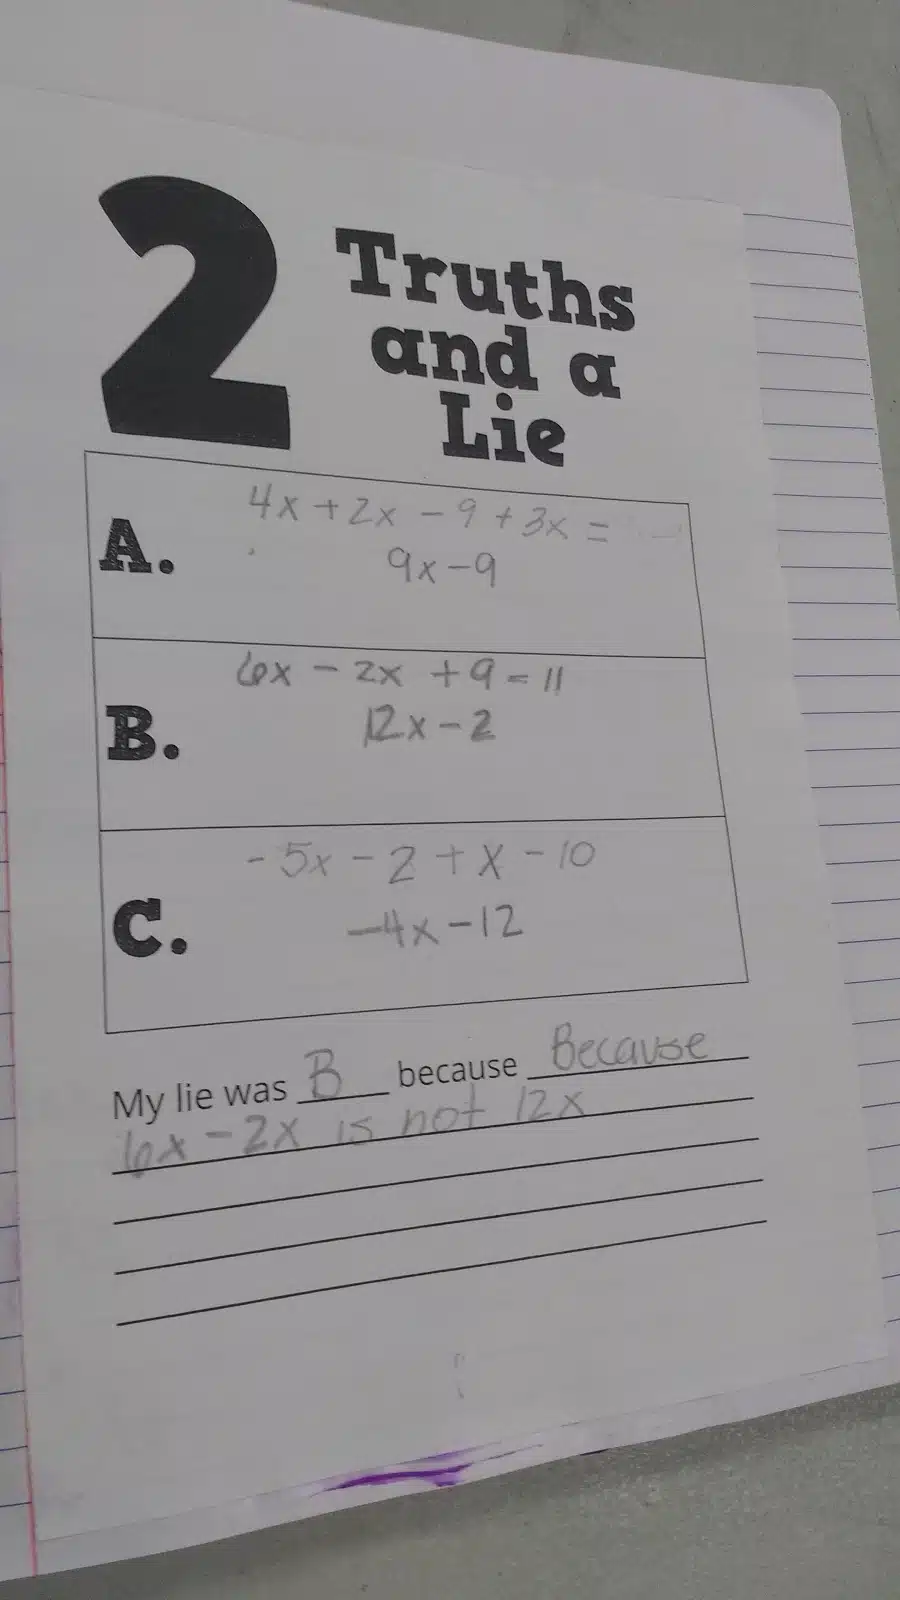 2 Truths
and a
Lie
A. 4x + 2x - 9 + 3x =
9x - 9
B. 6x - 2x + 9 = 11
12x - 2
C. - 5x - 2 + x - 10
-4x - 12
My lie was B because Because
6x - 2x is not 12x